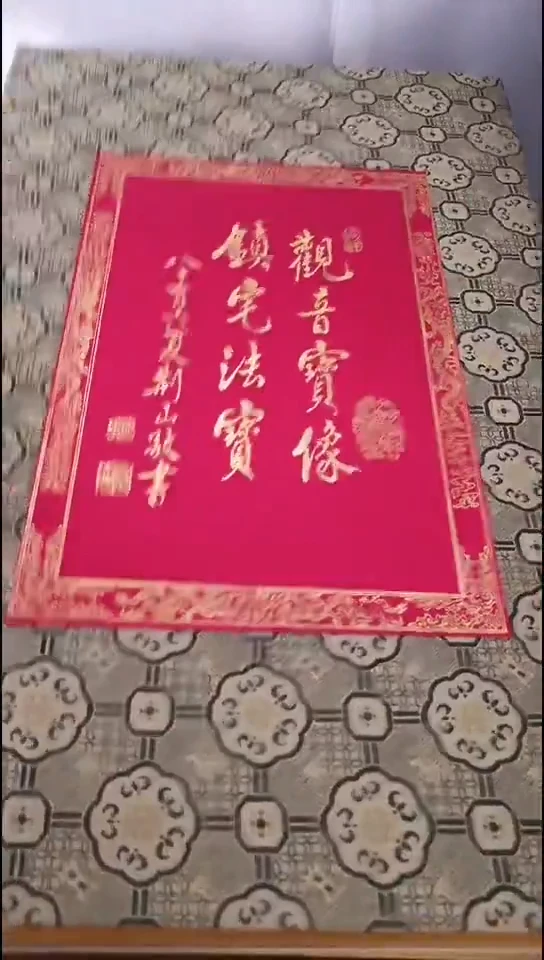 觀音寶像
鎮宅法寶
八方居荆山敬書